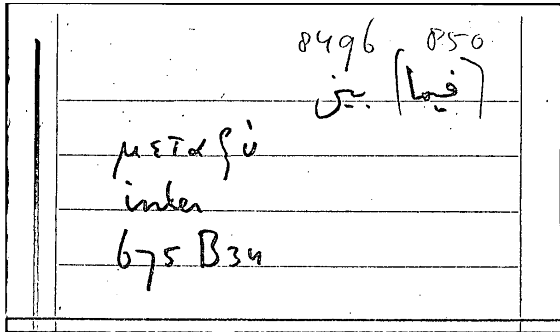 8496 850
(فيما) بين
μεταξύ
inter
675 B34